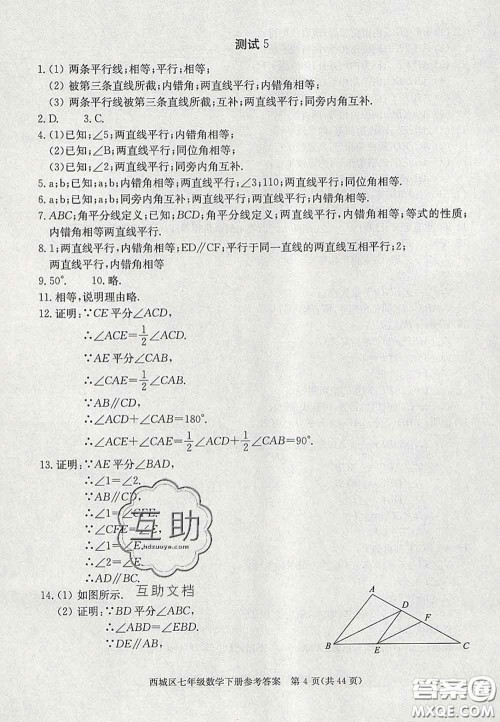 测试5
1.(1)两条平行线;相等;平行;相等;
(2)被第三条直线所截;内错角;两直线平行;内错角相等;
(3)两条平行线被第三条直线所截;互补;两直线平行;同旁内角互补.
2.D. 3.C.
4.(1)已知;∠5;两直线平行;内错角相等;
(2)已知;∠B;两直线平行;同位角相等;
(3)已知;∠2;两直线平行;同旁内角互补.
5.a;b;已知;a;b;内错角相等;两直线平行;∠3;110;两直线平行;同位角相等.
6.a;b;已知;a;b;同位角相等;两直线平行;两直线平行;内错角相等.
7.ABC;角平分线定义;已知;BCD;角平分线定义;两直线平行;内错角相等;等式的性质;
内错角相等两直线平行.
8.1;两直线平行,内错角相等;ED∥CF;平行于同一直线的两直线互相平行;2;
两直线平行,内错角相等
9.50°. 10.略.
11.相等,说明理由略.
12.证明:∵CE平分∠ACD,
∴∠ACE=1/2∠ACD.
∵AE平分∠CAB,
∴∠CAE=1/2∠CAB.
∵AB∥CD,
∴∠ACD+∠CAB=180°.
∴∠ACE+∠CAE=1/2∠ACD+1/2∠CAB=90°.
13.证明:∵AE平分∠BAD,
∴∠1=∠2.
∵AB∥CD,
∴∠1=∠CFE.
∵∠CFE=∠E,
∴∠1=∠E.
∴∠2=∠E.
∴AD∥BC.
互助
www.hdzuoye.com
互助文档
14.(1)如图所示.
(2)证明:∵BD平分∠ABC,
∴∠ABD=∠EBD.
∵DE∥AB,
A
D
F
B
E
C
西城区七年级数学下册参考答案 第4页(共44页)
答案圈
MXQE.COM